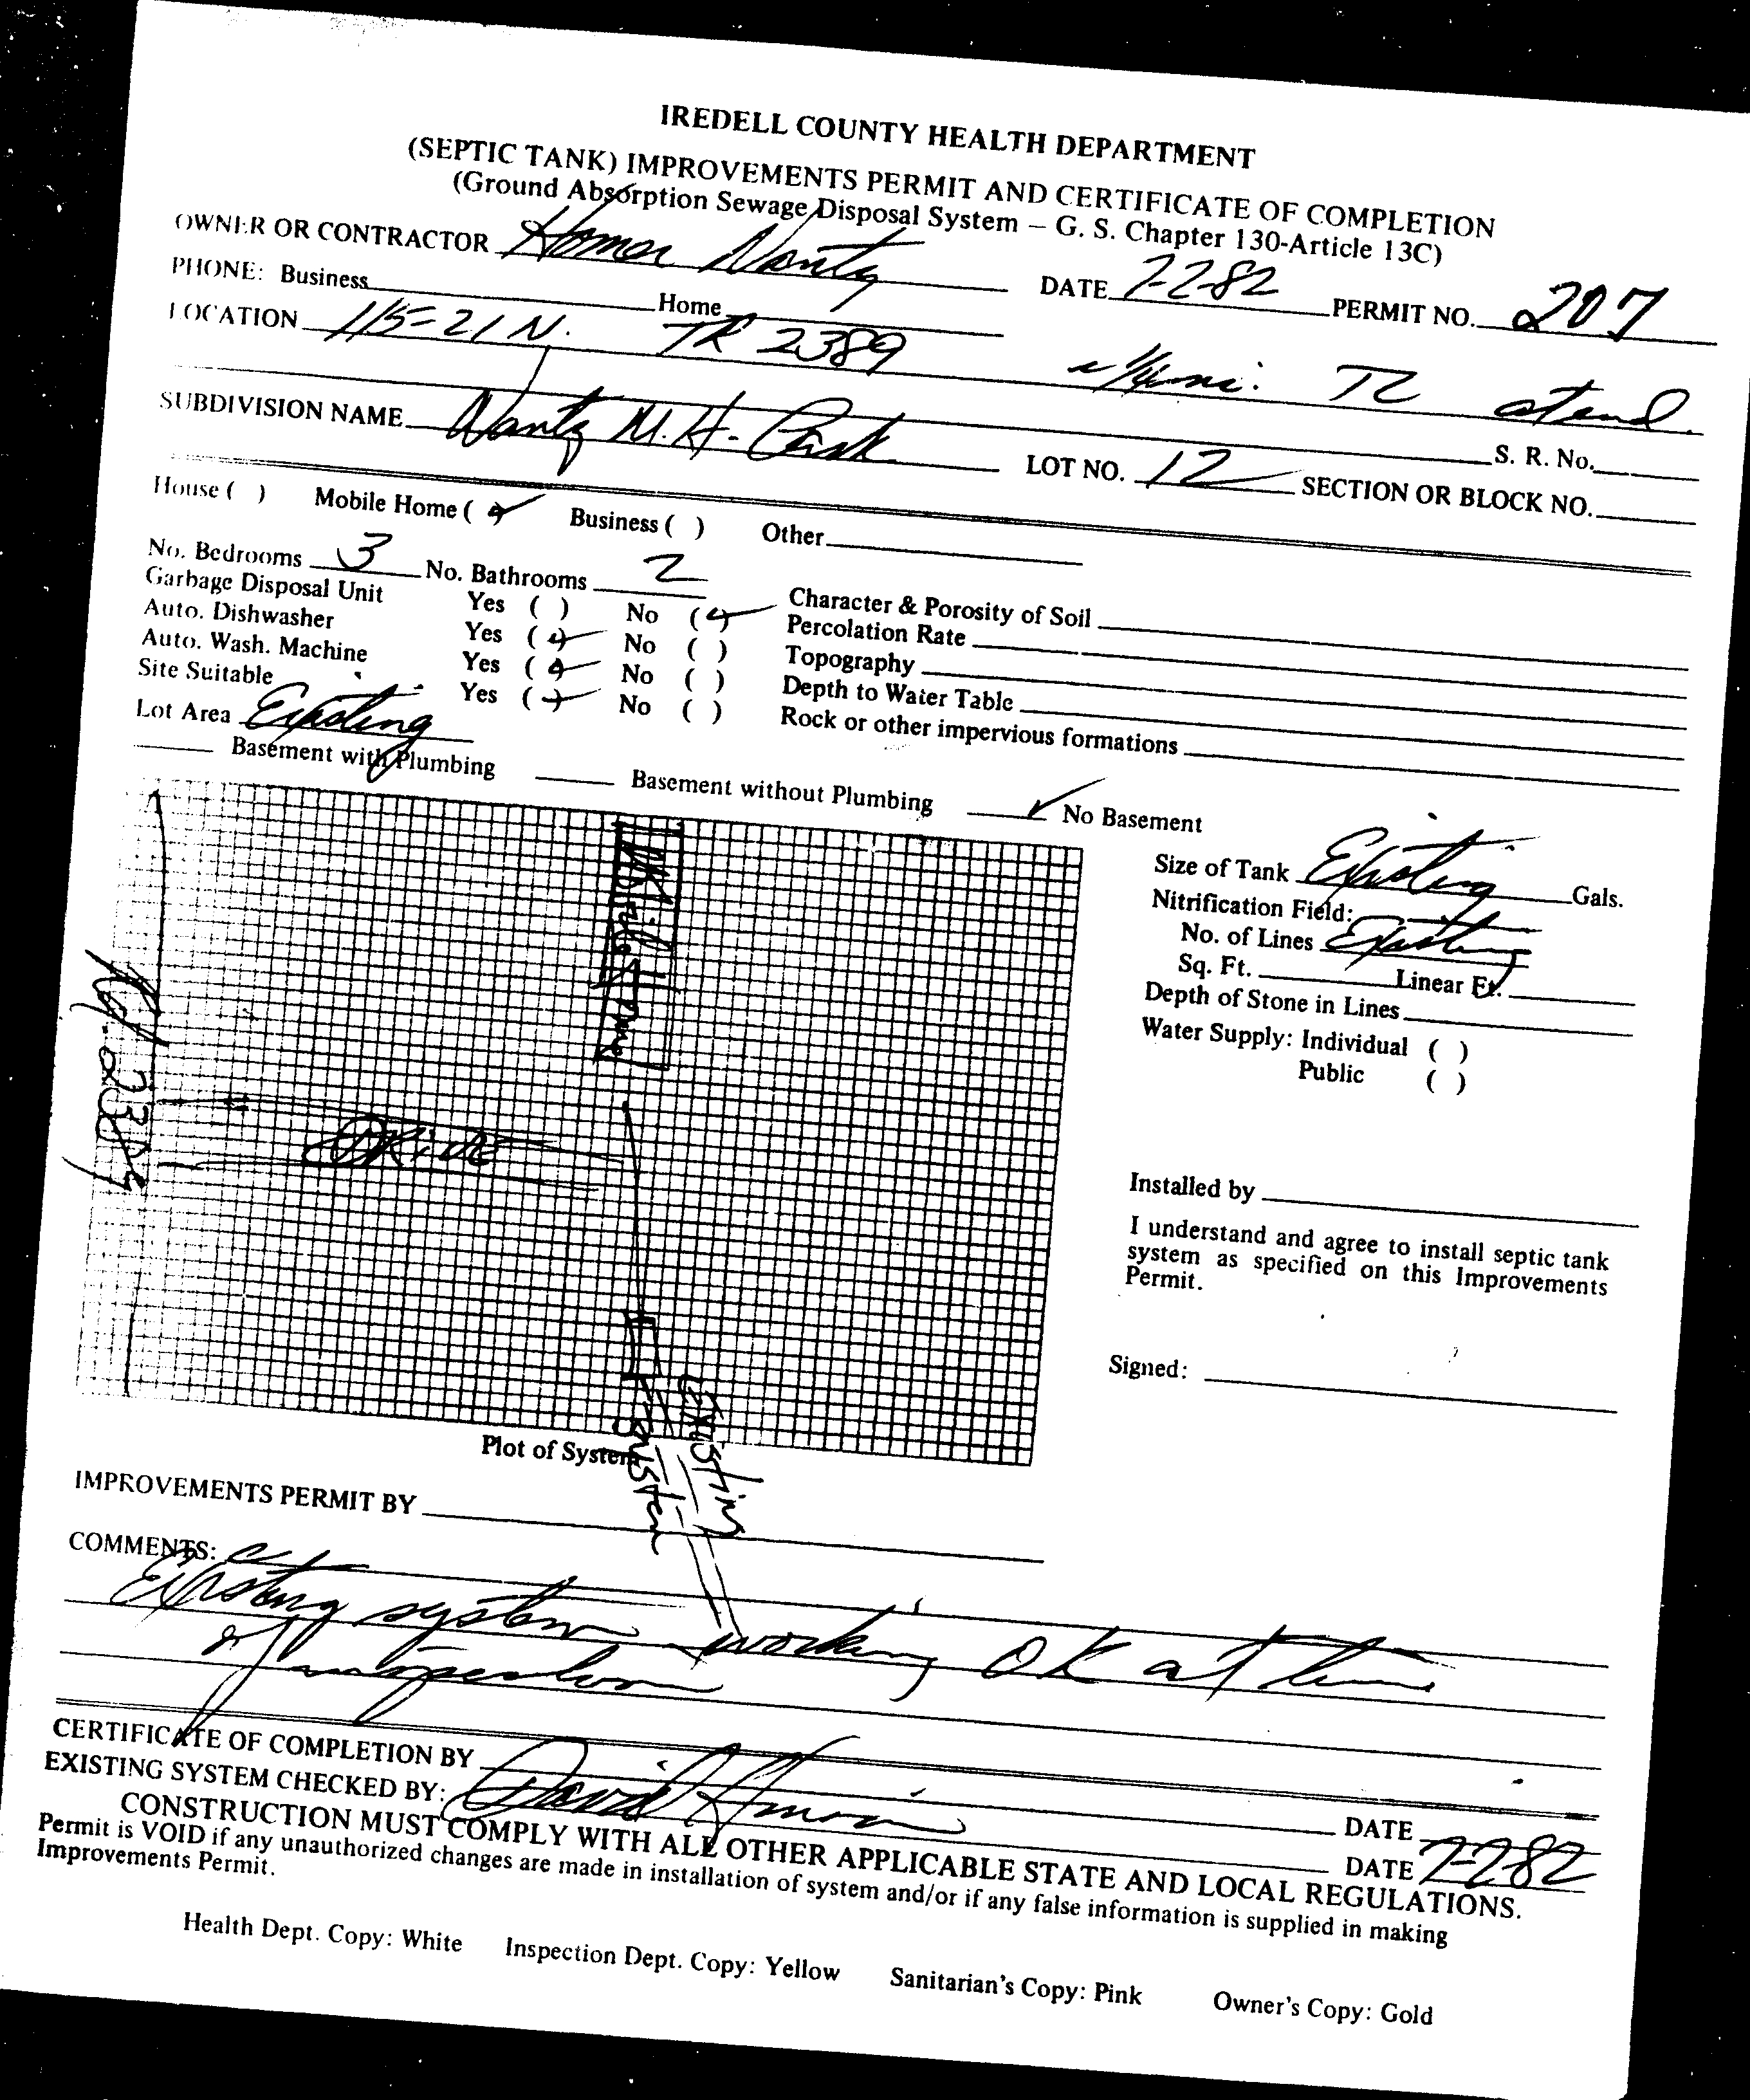 IREDELL COUNTY HEALTH DEPARTMENT
(SEPTIC TANK) IMPROVEMENTS PERMIT AND CERTIFICATE OF COMPLETION
(Ground Absorption Sewage Disposal System — G. S. Chapter 130-Article 13C)
OWNER OR CONTRACTOR Homer Nantz DATE 7-2-82 PERMIT NO. 207
PHONE: Business Home
LOCATION 115-21 N. TR 2389 1/4 mi. TL at end.
S. R. No.
SUBDIVISION NAME Nantz M.H. Park LOT NO. 12 SECTION OR BLOCK NO.
House ( ) Mobile Home (✓) Business ( ) Other
No. Bedrooms 3 No. Bathrooms 2
Garbage Disposal Unit Yes ( ) No (✓) Character & Porosity of Soil
Auto. Dishwasher Yes (✓) No ( ) Percolation Rate
Auto. Wash. Machine Yes (✓) No ( ) Topography
Site Suitable Yes (✓) No ( ) Depth to Water Table
Lot Area Existing Rock or other impervious formations
Basement with Plumbing Basement without Plumbing ✓ No Basement
Mobile Home
Drive
Existing
System
Size of Tank Existing Gals.
Nitrification Field:
No. of Lines Existing
Sq. Ft. Linear Ft.
Depth of Stone in Lines
Water Supply: Individual ( )
Public ( )
Installed by
I understand and agree to install septic tank
system as specified on this Improvements
Permit.
Signed:
Plot of System
IMPROVEMENTS PERMIT BY
COMMENTS:
Existing system working OK at time
of inspection
CERTIFICATE OF COMPLETION BY DATE
EXISTING SYSTEM CHECKED BY: David DATE 7-2-82
CONSTRUCTION MUST COMPLY WITH ALL OTHER APPLICABLE STATE AND LOCAL REGULATIONS.
Permit is VOID if any unauthorized changes are made in installation of system and/or if any false information is supplied in making
Improvements Permit.
Health Dept. Copy: White Inspection Dept. Copy: Yellow Sanitarian's Copy: Pink Owner's Copy: Gold